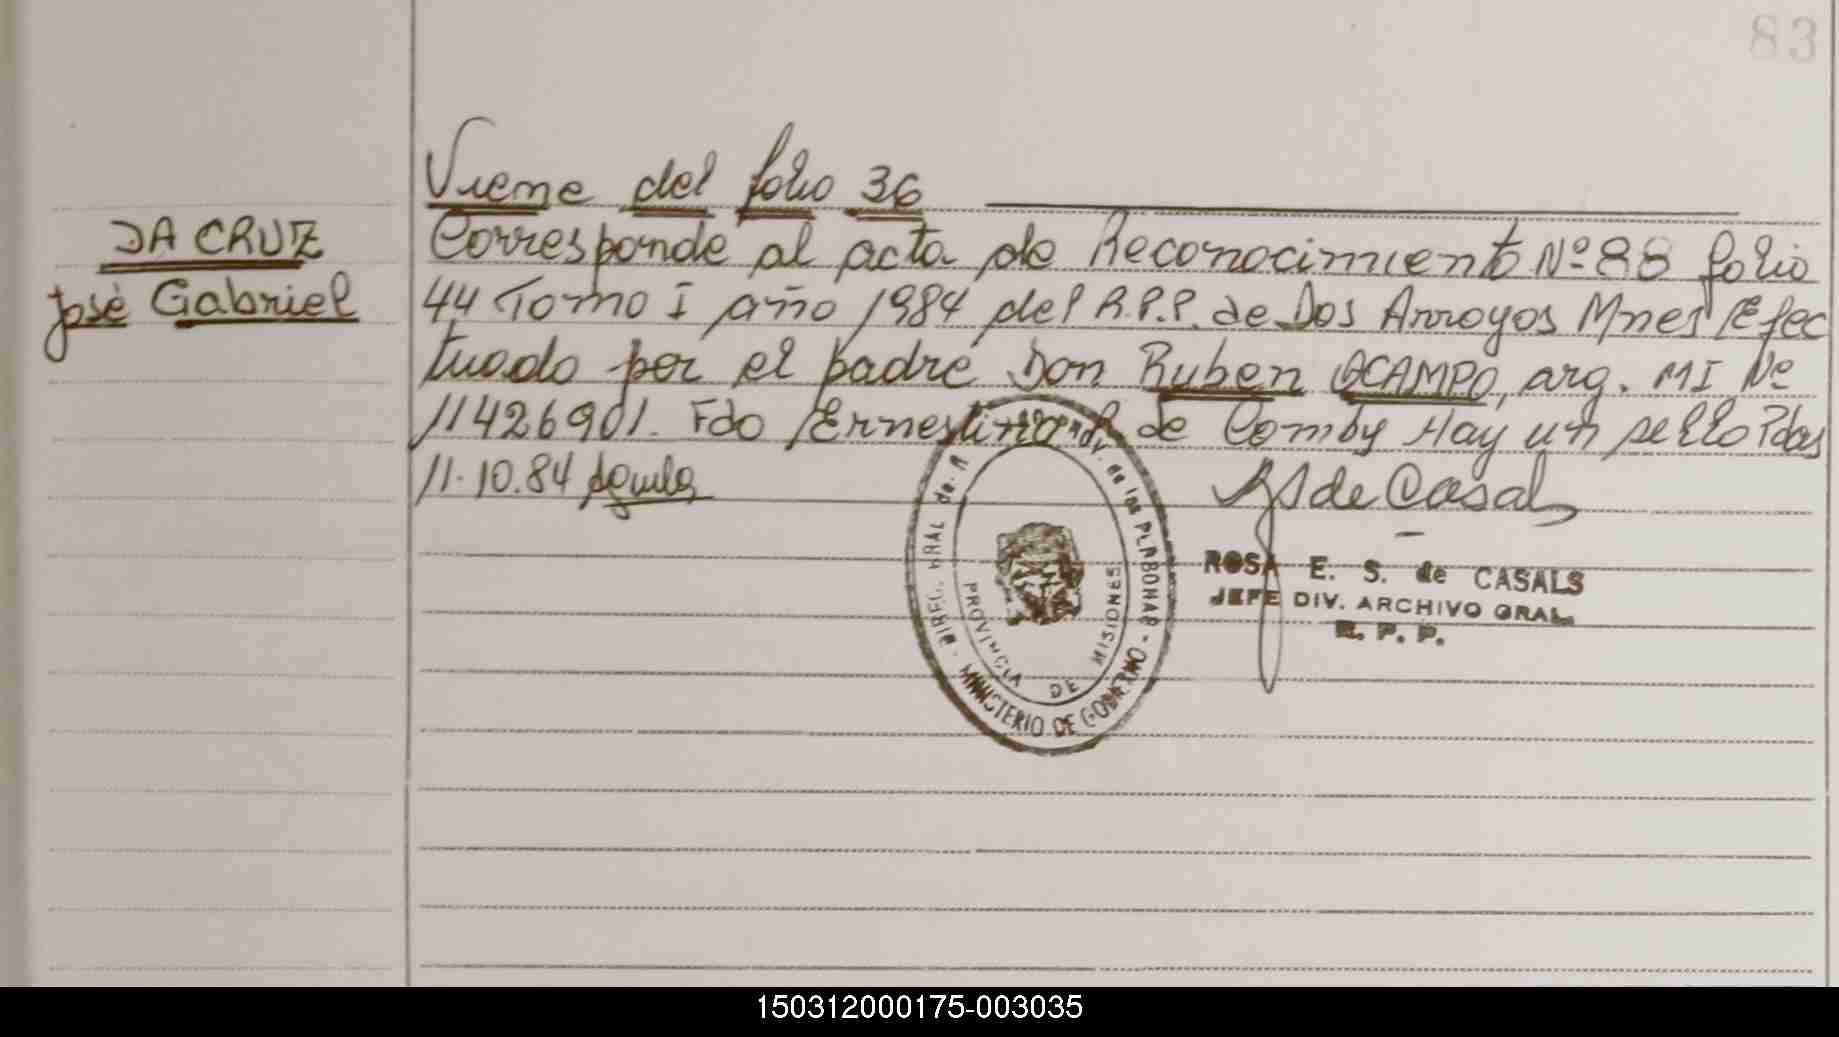 83
Viene del folio 36
DA CRUZ
José Gabriel
Corresponde al acta de Reconocimiento Nº 88 folio
44 Tomo I año 1984 del R.P.P. de Dos Arroyos Mnes Efec
tuado por el padre Don Ruben OCAMPO, arg. MI Nº
11426901. Fdo Ernestina de Comby Hay un sello Pdas
11.10.84
de Casals
ROSA E. S. de CASALS
JEFE DIV. ARCHIVO GRAL.
R. P. P.
DIREC. GRAL de. de las PERSONAS
PROVINCIA DE MISIONES
MINISTERIO DE GOBIERNO
150312000175-003035